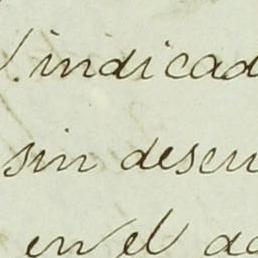 V. indicad
sin descu
en el ac